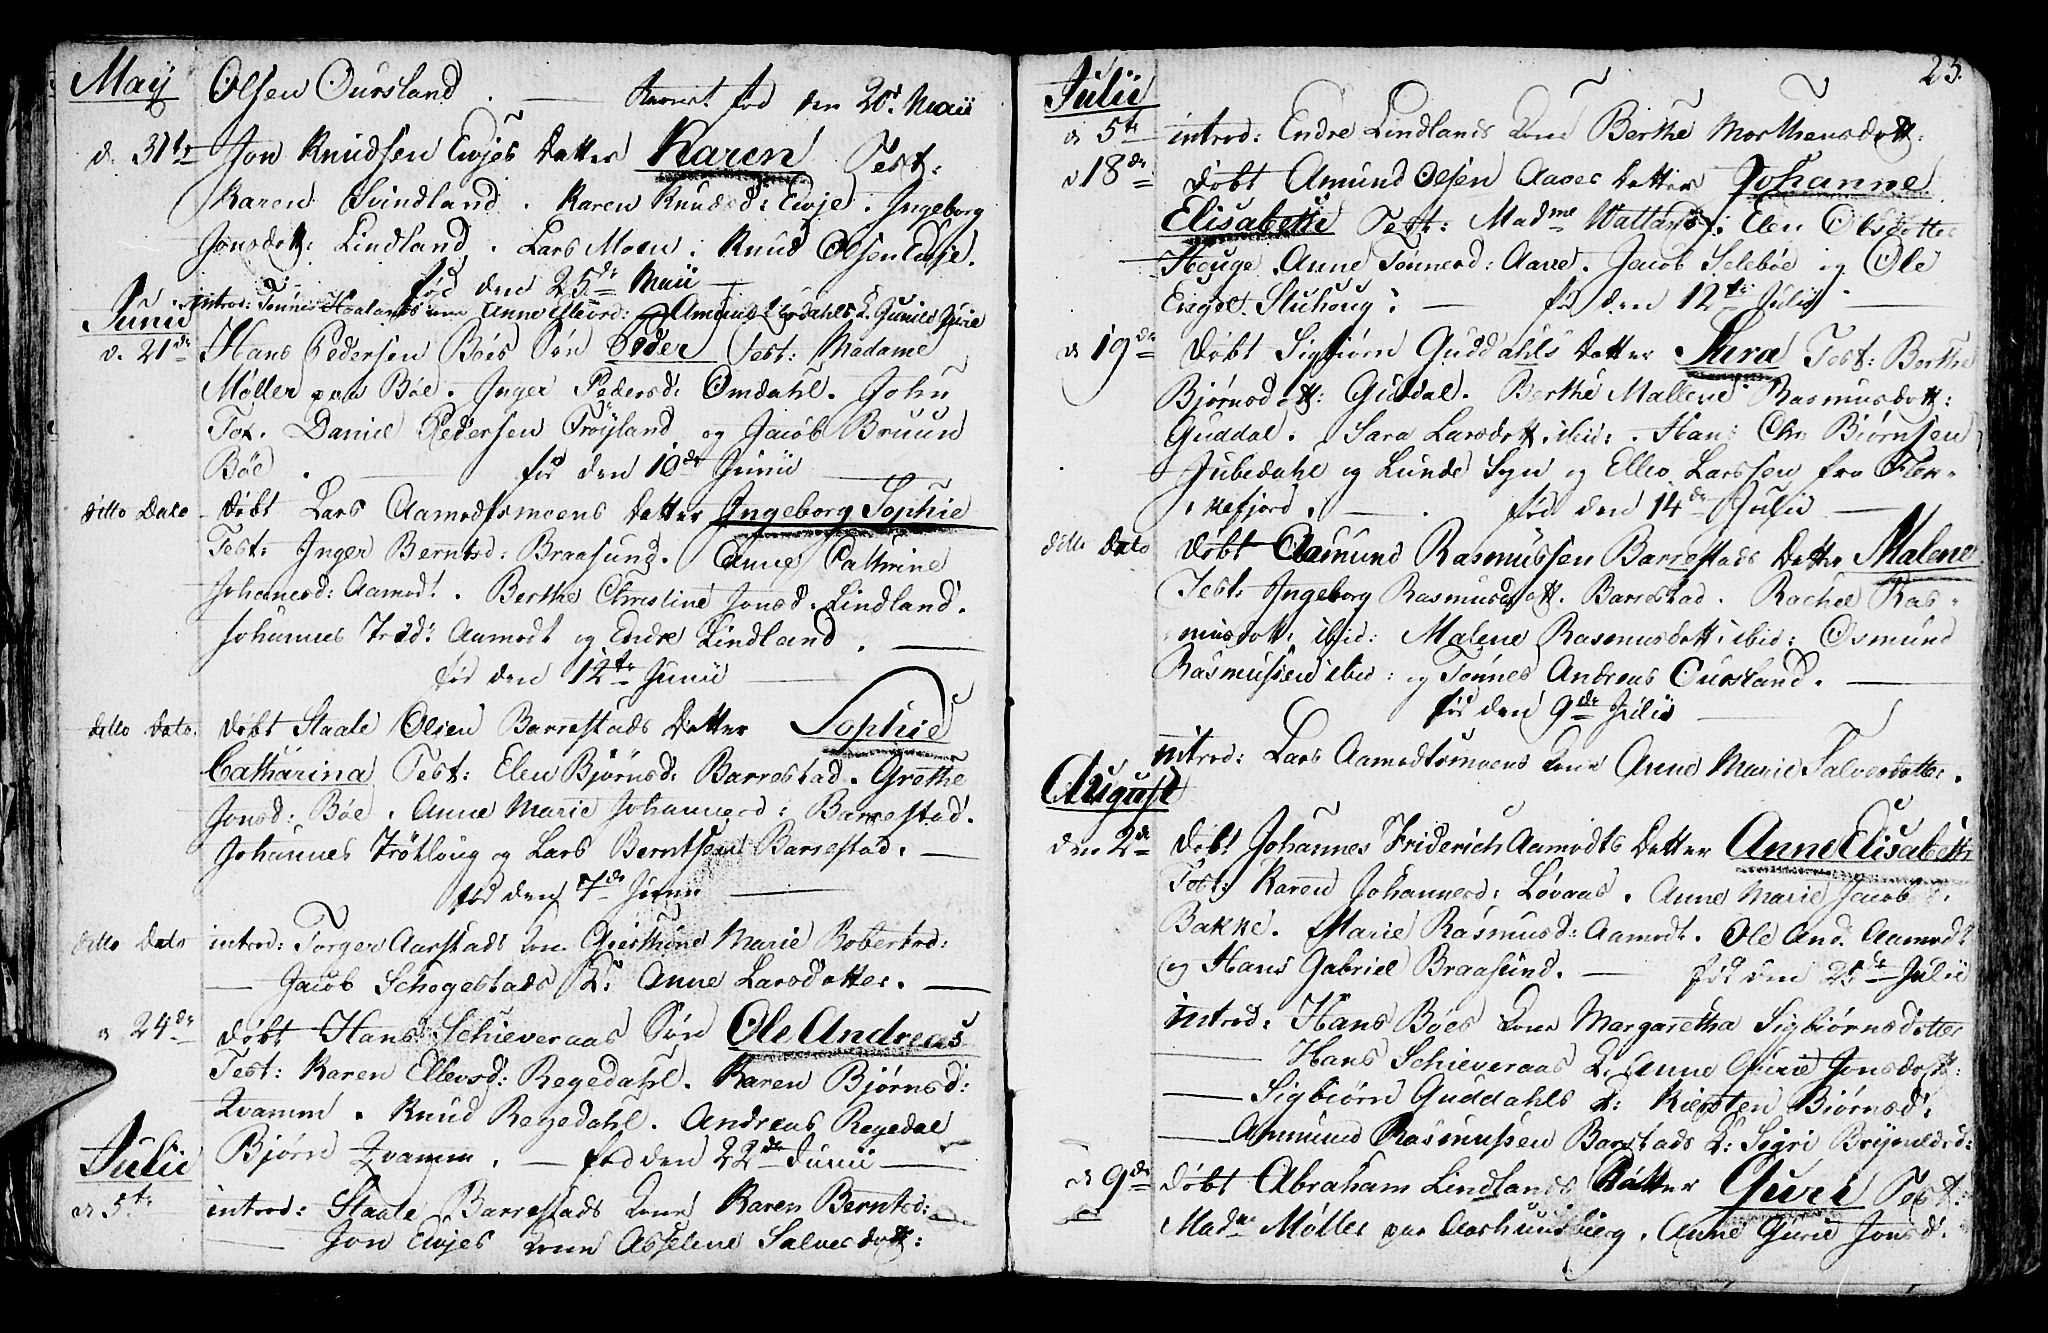 Maij Olsen Oursland . — Barnet fød den 20de Maii
d. 31te Jon Knudsen Evjes Datter Karen Test:
Karen Svindland . Karen Knudsd: Evje . Ingeborg
Jonsdott: Lindland . Lars Moen . Knud Olsen Evje .
fød den 25de Maii —
introd: Tønnes Hoalands Anne
Junii
d. 21de Hans Pedersen Böes Søn Peder Test: Madame
Møller paa Böe . Inger Pedersd: Omdahl . John
Daniel Pedersen Frøyland og Jacob Bruun
Böe . — fød den 10de Junii
ditto Dato døbt Lars Aamodtsmoens Datter Ingeborg Sophie
Test: Inger Berntsd: Braasund . Anne Cathrine
Johannesd: Aamodt . Berthe Christine Jonsd: Lindland .
Johannes Frid: Aamodt og Endre Lindland . —
fød den 12te Junii —
ditto Dato. døbt Staale Olsen Barrestads Datter Sophie
Catharina Test: Elen Bjørnsd: Barrestad . Grethe
Jonsd: Böe . Anne Marie Johannesd: Barrestad .
Johannes Frøtloug og Lars Berntsen Barrestad . —
fød den 7de Junii —
ditto Dato introd: Torger Aarstads Kone Marie Robertsd:
— Jacob Schogestads K: Anne Larsdotter . —
d 24de døbt Hans Schieveraas Søn Ole Andreas
Test: Karen Ellevsd: Regedahl . Karen Bjørnsd:
Qvamm . Knud Regedahl . Andreas Regedal
Bjørn Qvamm . — fød den 22de Junii —
Julii
d 5te introd: Staale Barrestads Kone Karen Berntsd:
— Jon Evjes Kone Asselene Salvesdott:
23.
Julii
d 5te introd: Endre Lindlands Kone Berthe Morthensdott:
d 18de døbt Amund Olsen Aaves Datter Johanne
Elisabethe Test: Madme Elen Olsdotter
Houge . Anne Tønnesd: Aave . Jacob Selebøe og Ole
Engel. Stuhoug: — fød den 12te Julii
d 19de døbt Sigbjørn Guddahls Datter Sara Test: Berthe
Bjørnsdott: Guddal . Berthe Mallene Rasmusdott:
Guddal . Sara Larsdott: ibid: . Hans Chr Bjørnsen
Jubedahl og Lunde Sogn og Ellev Larssen fra Flek-
kefjord . — . fød den 14de Julii —
ditto Dato døbt Aamund Rasmussen Barrestads Datter Malene
Test: Ingeborg Rasmusdott: Barrestad . Rachel Ras-
musdott: ibid: Malene Rasmusdott: ibid: Osmund
Rasmussen ibid: og Tønnes Andreas Oursland . —
fød den 9de Julii —
introd: Lars Aamodtsmoens Kone Anne Marie Salvesdotter .
August
den 2de døbt Johannes Friderich Aamodts Datter Anne Elisabeth
Test: Karen Johannesd: Løvaas . Anne Marie Jacobsd:
Bakke . Marie Rasmusd: Aamodt . Ole And. Aamodt
og Hans Gabriel Braasund . — fød den 25de Julii
introd: Hans Böes Kone Margaretha Sigbiørnsdotter
— Hans Schieveraas K: Anne Gurie Jonsdott:
— Sigbiørn Guddahls K: Kiersten Bjørnsd:
— Ammund Rasmussen Barstads K: Sigri
d 9de døbt Abraham Lindlands Datter Guri Test:
Madme Møller paa . Anne Gurie Jonsd: